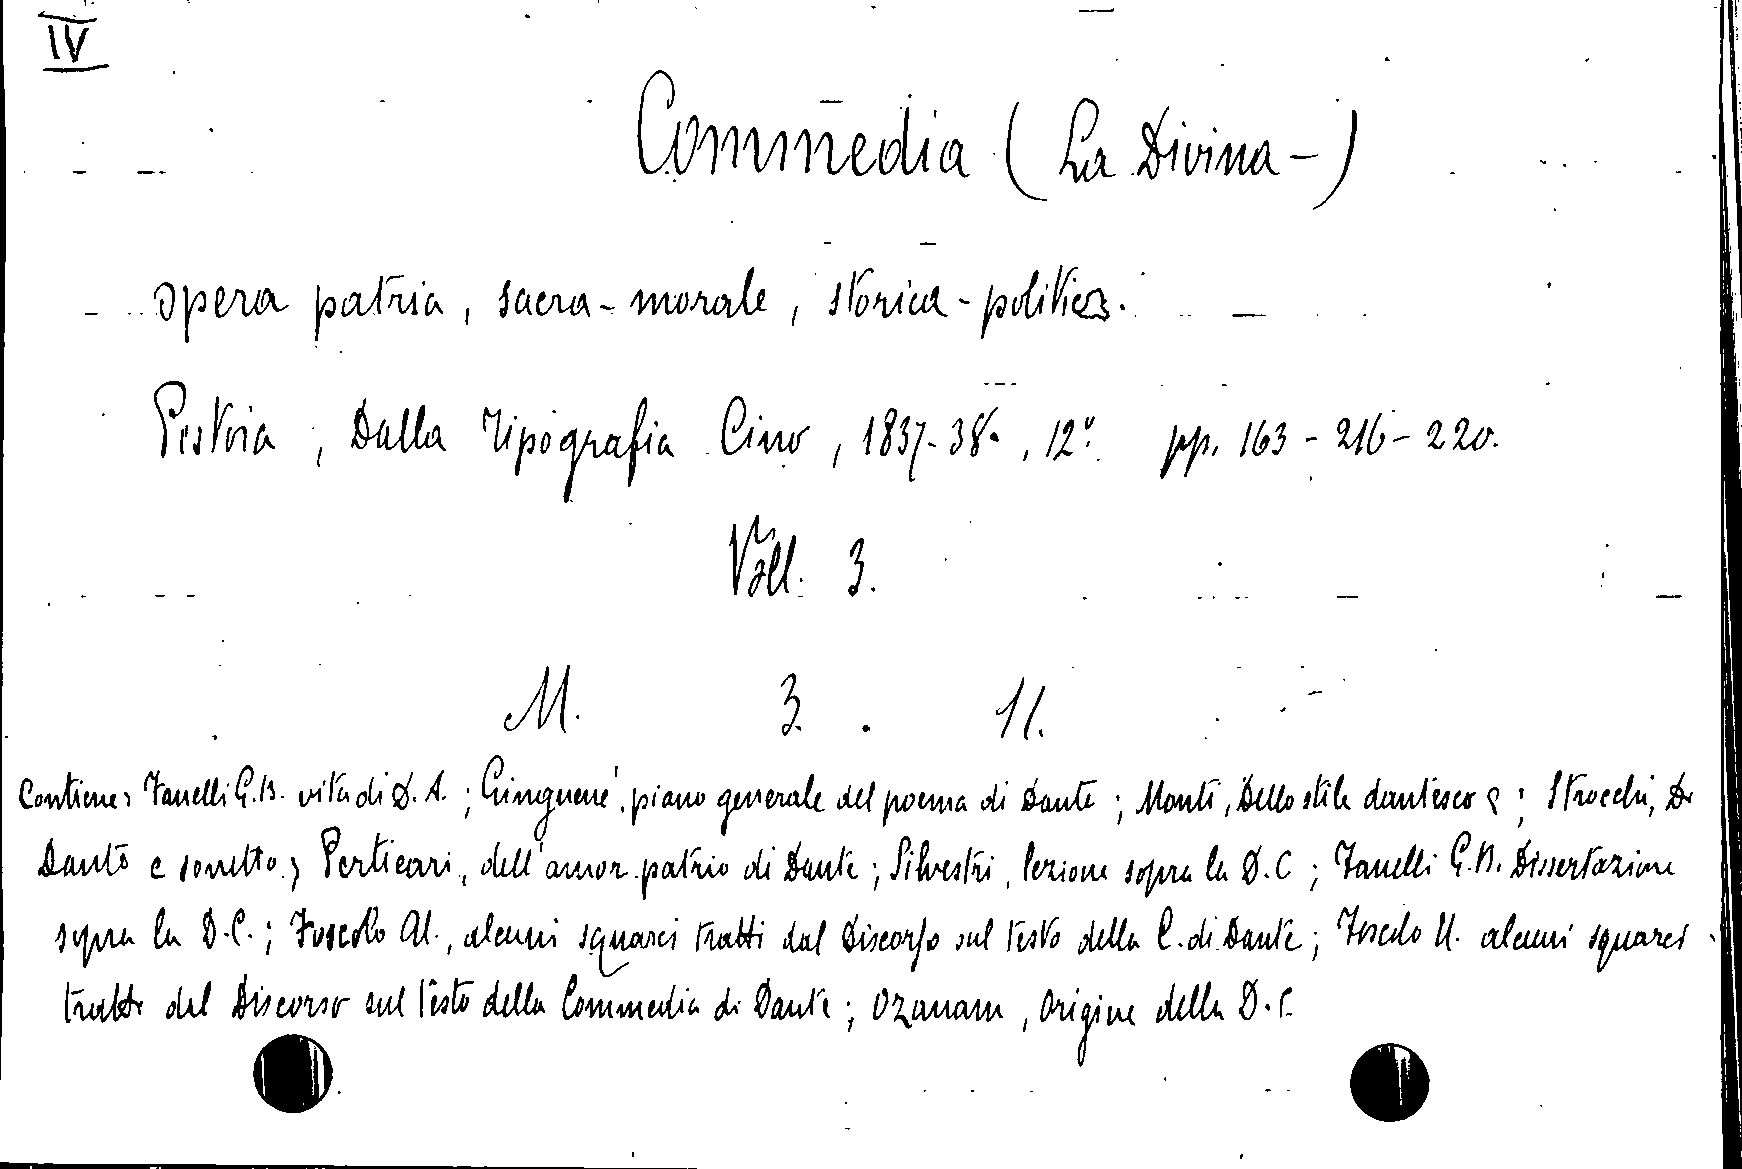 IV
Commedia (La Divina -)
opera patria, sacra-morale, storica-politica.
Pistoia, Dalla Tipografia Cino, 1837-38. , 12° pp. 163 - 216 - 220.
Voll. 3.
M. 3. 11.
Contiene: Fanelli G.B. vita di D. A. ; Ginguené, piano generale del poema di Dante ; Monti, Dello stile dantesco ; Strocchi, Di
Dante e sonetto ; Perticari, dell'amor patrio di Dante ; Silvestri, lezione sopra la D. C ; Fanelli G.B. Dissertazione
sopra la D. C. ; Foscolo U., alcuni squarci tratti dal Discorso sul testo della C. di Dante ; Foscolo U. alcuni squarci
tratti del Discorso sul testo della Commedia di Dante ; Ozanam, Origine della D. C.